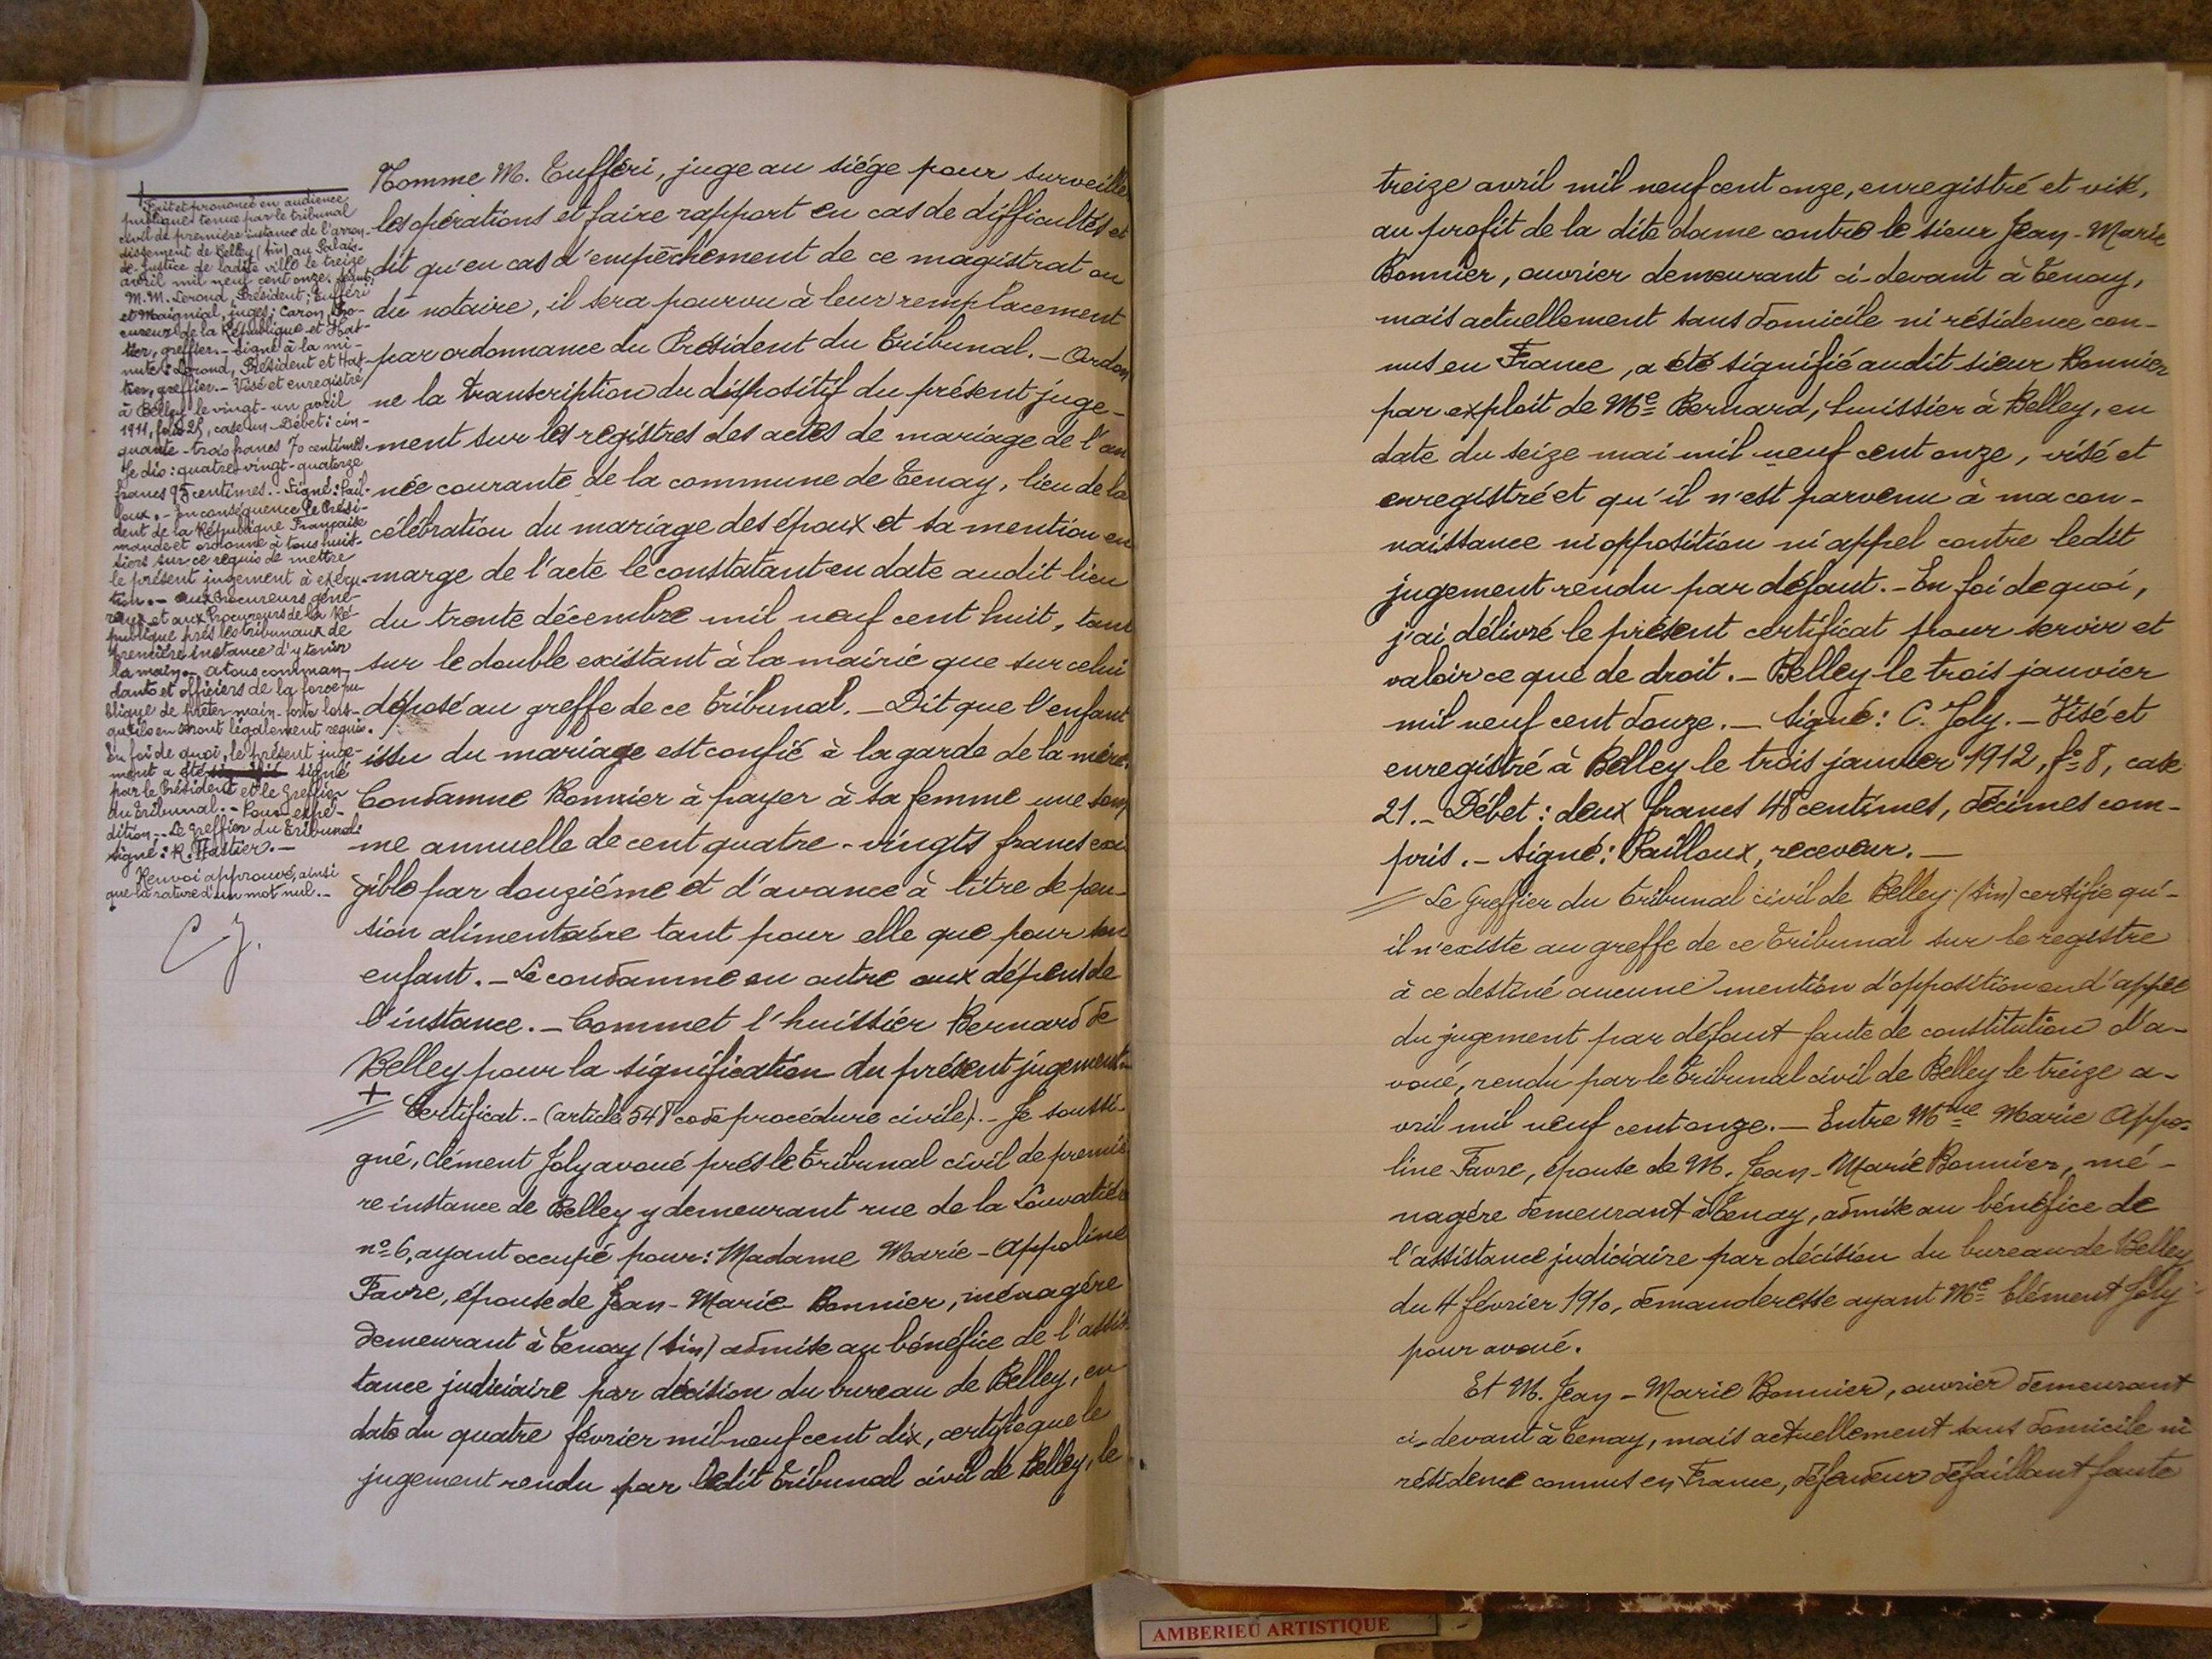 Fait et prononcé en audience
publique tenue par le tribunal
civil de première instance de l'arron-
dissement de Belley (Ain) au Palais-
de-Justice de ladite ville le treize
avril mil neuf cent onze.
M.M. Lerond, Président; Tufféri
et Maignial, juges; Caron, Pro-
cureur de la République et Hat-
tier, greffier. - Signé à la mi-
nute: Lerond, Président et Hat-
tier, greffier. - Visé et enregistré
à Belley le vingt-un avril
1911, folio 25, case un. Débet: cin-
quante-trois francs 70 centimes.
Je dis: quatre-vingt-quatorze
francs 95 centimes. - Signé: Pail-
loux. - En conséquence le Prési-
dent de la République Française
mande et ordonne à tous huis-
siers sur ce requis de mettre
le présent jugement à exécu-
tion. - aux Procureurs géné-
raux et aux Procureurs de la Ré-
publique près les tribunaux de
première instance d'y tenir
la main. - A tous comman-
dants et officiers de la force pu-
blique de prêter main-forte lors-
qu'ils en seront légalement requis.
En foi de quoi, le présent juge-
ment a été signé
par le Président et le Greffier
du Tribunal. - Pour expé-
dition. - Le Greffier du Tribunal:
signé: R. Hattier. -
Renvoi approuvé, ainsi
que la rature d'un mot nul. -
C J.
Nomme M. Tufféri, juge au siége pour surveiller
les opérations et faire rapport en cas de difficultés et
dit qu'en cas d'empêchement de ce magistrat ou
du notaire, il sera pourvu à leur remplacement
par ordonnance du Président du Tribunal. - Ordon
ne la transcription du dispositif du présent juge-
ment sur les registres des actes de mariage de l'an
née courante de la commune de Tenay, lieu de la
célébration du mariage des époux et sa mention en
marge de l'acte le constatant en date audit lieu
du trente décembre mil neuf cent huit, tant
sur le double existant à la mairie que sur celui
déposé au greffe de ce Tribunal. - Dit que l'enfant
issu du mariage est confié à la garde de la mère.
Condamne Bonnier à payer à sa femme une som
me annuelle de cent quatre-vingts francs exi
gible par douzième et d'avance à titre de pen-
sion alimentaire tant pour elle que pour son
enfant. - Le condamne en outre aux dépens de
l'instance. - Commet l'huissier Bernard de
Belley pour la signification du présent jugement. -
+
// Certificat. - (article 548 code procédure civile). - Je soussi-
gné, Clément Joly avoué près le Tribunal civil de premiè
re instance de Belley y demeurant rue de la Louvatière
n° 6, ayant occupé pour: Madame Marie-Appoline
Favre, épouse de Jean-Marie Bonnier, ménagère
demeurant à Tenay (Ain) admise au bénéfice de l'assis
tance judiciaire par décision du bureau de Belley, en
date du quatre février mil neuf cent dix, certifie que le
jugement rendu par ledit Tribunal civil de Belley, le
treize avril mil neuf cent onze, enregistré et visé,
au profit de la dite dame contre le sieur Jean-Marie
Bonnier, ouvrier demeurant ci-devant à Tenay,
mais actuellement sans domicile ni résidence con-
nus en France, a été signifié audit sieur Bonnier
par exploit de Me Bernard, huissier à Belley, en
date du seize mai mil neuf cent onze, visé et
enregistré et qu'il n'est parvenu à ma con-
naissance ni opposition ni appel contre ledit
jugement rendu par défaut. - En foi de quoi,
j'ai délivré le présent certificat pour servir et
valoir ce que de droit. - Belley le trois janvier
mil neuf cent douze. - Signé: C. Joly. - Visé et
enregistré à Belley le trois janvier 1912, f° 8, case
21. - Débet: deux francs 48 centimes, décimes com-
pris. - Signé: Pailloux, receveur. -
// Le Greffier du Tribunal civil de Belley (Ain) certifie qu'-
il n'existe au greffe de ce Tribunal sur le registre
à ce destiné aucune mention d'opposition ou d'appel
du jugement par défaut faute de constitution d'a-
voué, rendu par le Tribunal civil de Belley le treize a-
vril mil neuf cent onze. - Entre Mme Marie Appo-
line Favre, épouse de M. Jean-Marie Bonnier, mé-
nagère demeurant à Tenay, admise au bénéfice de
l'assistance judiciaire par décision du bureau de Belley
du 4 février 1910, demanderesse ayant Me Clément Joly
pour avoué.
Et M. Jean-Marie Bonnier, ouvrier demeurant
ci-devant à Tenay, mais actuellement sans domicile ni
résidence connus en France, défendeur défaillant faute
AMBERIEU ARTISTIQUE